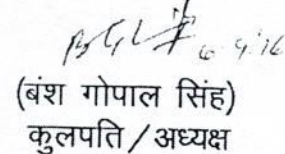 6.9.16
(बंश गोपाल सिंह)
कुलपति / अध्यक्ष